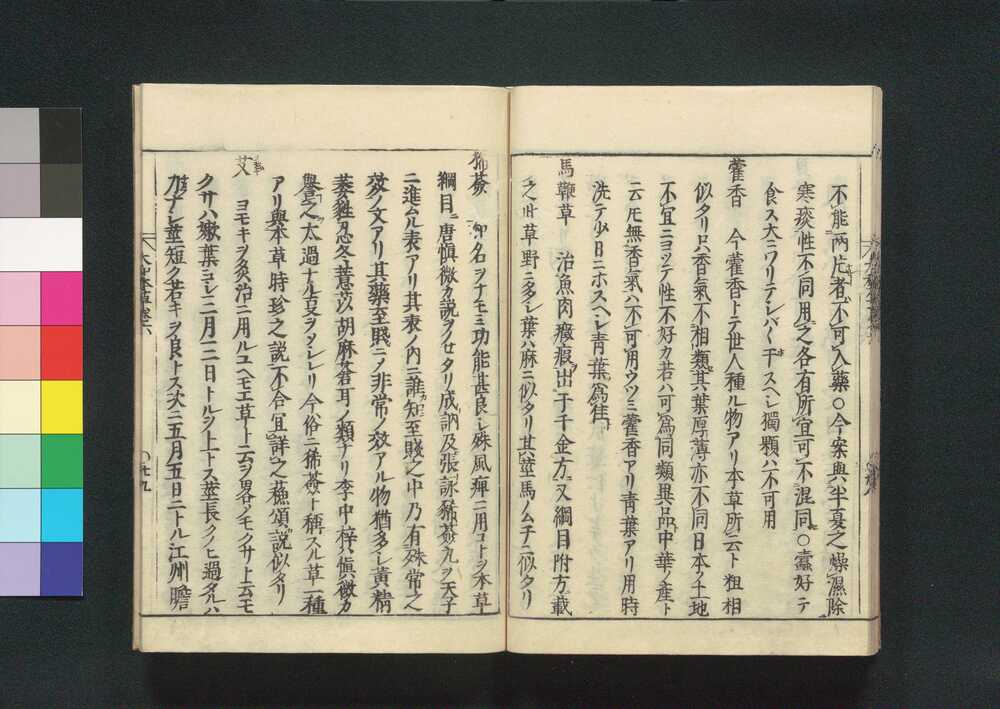 不能兩片者不可入藥○今案與半夏之燥濕除
寒痰性不同用之各有所宜可不混同○蠹好テ
食ス大ニワリテシバ〱干スヘシ獨顆ハ不可用
藿香 今藿香トテ世人種ル物アリ本草所云ト粗相
似タリトハ香氣不相類其葉厚薄亦不同日本ノ土地
不宜ニヨツテ性不好カ若ハ可爲同類異品中華ノ産ト
云ヒ無香氣ハ不可用ウツミ藿香アリ青葉アリ用時
洗テ少日ニホスヘシ青葉爲佳
馬鞭草 治漁肉瘕出于千金方又綱目附方載
之此草野ニ多シ葉ハ麻ニ似タリ其莖馬ノムチニ似タリ
豨薟 和名ヲナモミ功能甚良シ殊風痺ニ用コトヲ本草
綱目唐愼微カ説ヲノセタリ成訥及張詠豨薟丸ヲ天子
ニ進ムル表アリ其表ノ内ニ誰知至賤之中乃有殊常之
效ノ文アリ其藥至賤ニノ非常ノ效アル物猶多シ黄精
葳蕤忍冬薏苡胡麻蒼耳ノ類ナリ李中梓愼微カ
譽之太過ナル
アリ與本草時珍之説不合宜詳之蘓頌説似タリ
艾 ヨモキヲ灸治ニ用ルユヘモエ草ト云ヲ畧ノモクサト云モ
クサハ嫩葉ヨシ三月三日トルヲ上トス莖長クノヒ過タルハ
力ナシ莖短ク若キヲ良トス次ニ五月五日ニトル江州膽